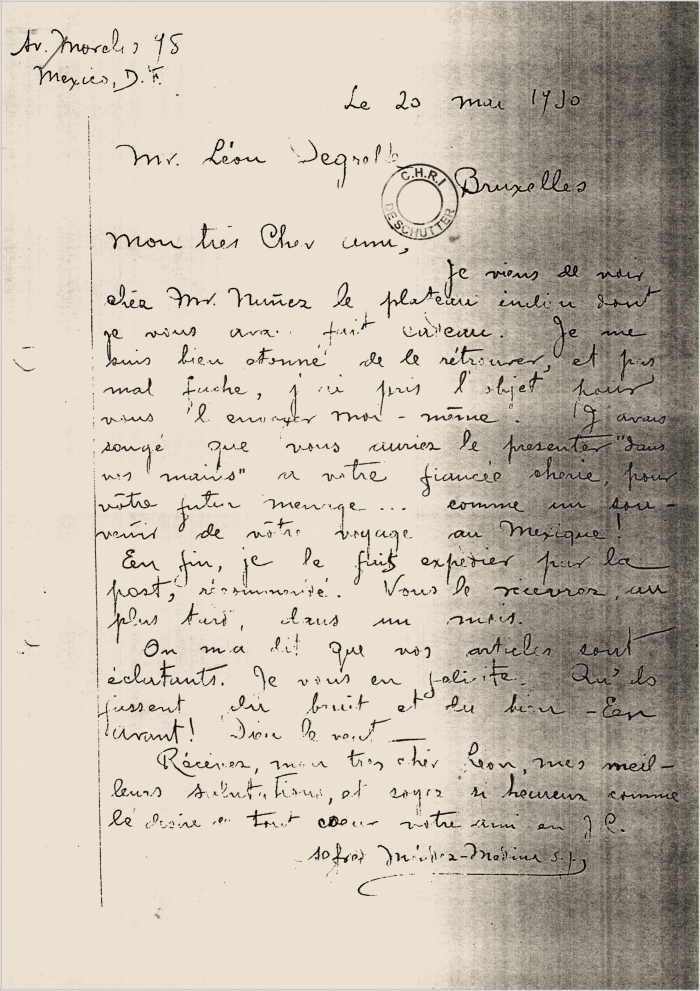 Av. Morelos 45
Mexico, D.F.
Le 20 mai 1930
Mr. Léon Degrelle
C.H.R.I
DE SCHUTTER
Bruxelles
Mon très Cher ami,
Je viens de voir
chéz Mr. Nuñez le plateau indien dont
je vous avai fait cadeau. Je me
suis bien étonné de le rétrouver, et pas
mal faché, j'ai pris l'objet pour
vous l'envoyer moi-même. J'avais
songé que vous auriez le presenter "dans
vos mains" a vôtre fiancée chérie, pour
vôtre futur menage ... comme un sou-
venir de vôtre voyage au Mexique!
Een fin, je le fais expédier par la
post, récommandé. Vous le recevrez, au
plus tard, dans un mois.
On m'a dit que vos articles sont
éclatants. Je vous en felicite. Qu'ils
fassent du bruit et du bien - Een
avant! Dieu le veut
Récévez, mon très cher Léon, mes meil-
leurs salutations, et soyez si heureux comme
le désire de tout coeur votre ami en J.C.
Méndez-Medina s.j.